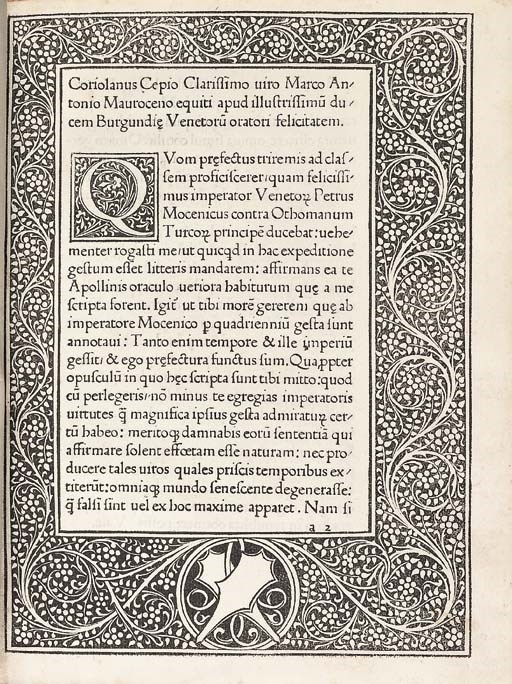 Coriolanus Cepio Clarissimo uiro Marco An⸗
tonio Mauroceno equiti apud illustrissimū du⸗
cem Burgundię Venetorū oratori felicitatem.
QVom pręfectus triremis ad clas⸗
sem proficiscerer: quam felicissi⸗
mus imperator Venetoꝝ Petrus
Mocenicus contra Othomanum
Turcoꝝ principē ducebat: uehe⸗
menter rogasti me: ut quicqd in hac expeditione
gestum esset litteris mandarem: affirmans ea te
Apollinis oraculo ueriora habiturum quę a me
scripta forent. Igit ut tibi morē gererem quę ab
imperatore Mocenico p quadrienniū gesta sunt
annotaui: Tanto enim tempore & ille īmperiū
gessit: & ego pręfectura functus sum. Quapp̱ter
opusculū in quo hęc scripta sunt tibi mitto: quod
cū perlegeris: nō minus te egregias imperatoris
uirtutes q̄ magnifica ipsius gesta admiratuꝝ cer⸗
tū habeo: meritoqꝫ damnabis eorū sententiā qui
affirmare solent effœtam esse naturam: nec pro⸗
ducere tales uiros quales priscis temporibus ex⸗
titerūt: omniaqꝫ mundo senescente degenerasse:
q̄ falsi sint uel ex hoc maxime apparet. Nam si
a 2